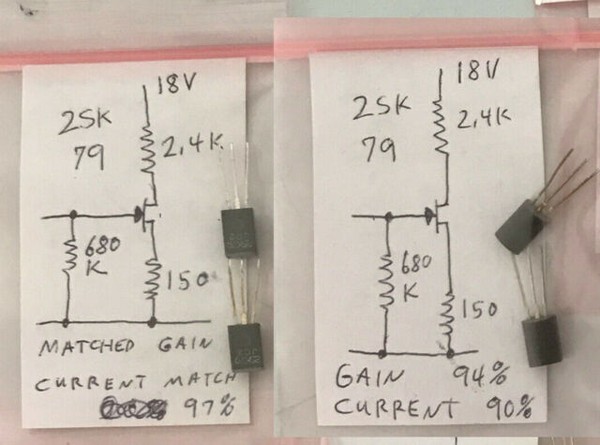 18V
2SK
79
2,4K
680
K
150
MATCHED GAIN
CURRENT MATCH
97%
18V
2SK
79
2,4K
680
K
150
GAIN 94%
CURRENT 90%